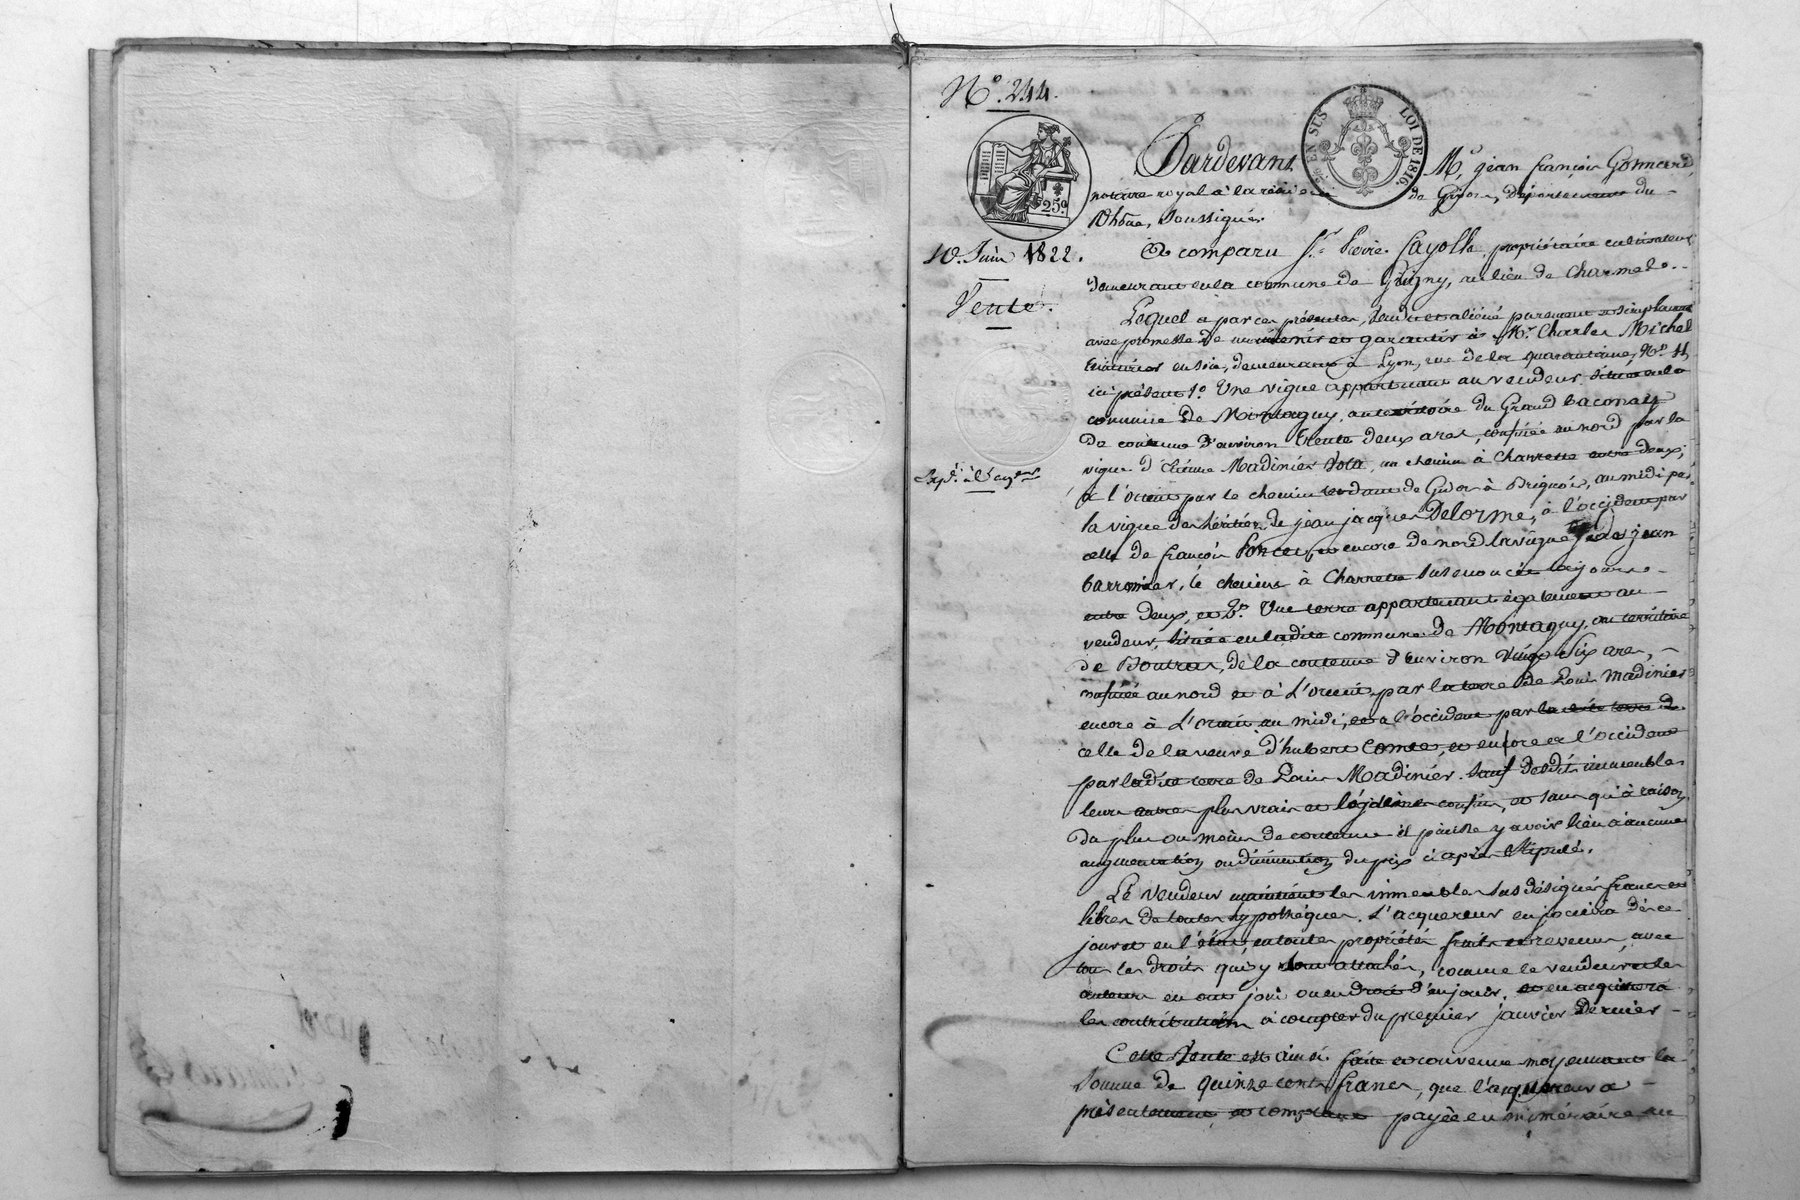 N.º 244.
EN SUS
LOI DE 1816.
25c
Pardevant Me. jean françois Gonnard,
notaire royal à la résidence de Givors, département du
Rhône, soussigné.
10. Juin 1822.
A comparu Sr. Pierre Cayolle, propriétaire cultivateur
Vente.
demeurant en la commune de Grigny, au lieu de Charmele.
Lequel a par ces présentes, vendu et aliéné purement et simplement
avec promesse de maintenir et garantir à Mr. Charles Michel
teinturier en soie, demeurant à Lyon, rue de la quarantaine, No.
ici présent 1o. Une vigne appartenant au vendeur située en la
commune de Montagny, au territoire du Grand baconay
de contenue d'environ trente deux ares, confinée au nord par la
vigne d'étienne Madinier dola, un chemin à Charrette entre deux;
à l'orient par le chemin tendant de Givors à Brignais, au midi par
la vigne des héritiers de jean jacques Delorme, à l'occident par
celle de françois Poncet, et encore de nord la vigne de jean
barronier, le chemin à Charrette susénoncé toujours
entre deux, et 2o. Une terre appartenant également au
vendeur, située en ladite commune de Montagny, au territoire
de Boutras, de la contenue d'environ vingt six ares,
confinée au nord et à l'orient par la terre de Louis Madinier
encore à l'orient au midi, et à l'occident par la dite terre de
celle de la veuve d'hubert Comte, et encore à l'occident
par ladite terre de Louis Madinier. Sauf desdits immeubles
leurs autres plus vrais et légitimes confins, et sans qu'à raison
du plus ou moins de contenue il puisse y avoir lieu à aucune
augmentation ou diminution du prix ci après stipulé.
Le vendeur maintient les immeubles sus désignés francs et
libres de toutes hypothèques. L'acquereur en jouira dès ce
jour et en l'état, en toute propriété fruits et revenus, avec
tous les droits qui y sont attachés, comme le vendeur et les
auteurs en ont joui ou eu droit d'en jouir, et en acquittera
les contributions à compter du premier janvier dernier
Cette Vente est ainsi faite et convenue moyennant la
somme de quinze cents francs, que l'acquereur a
présentement et comptant payée en numéraire au